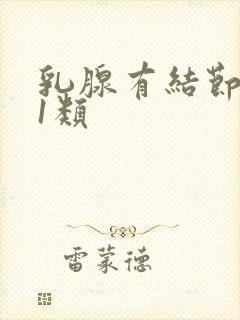 乳腺有結節
1類
雷蒙德